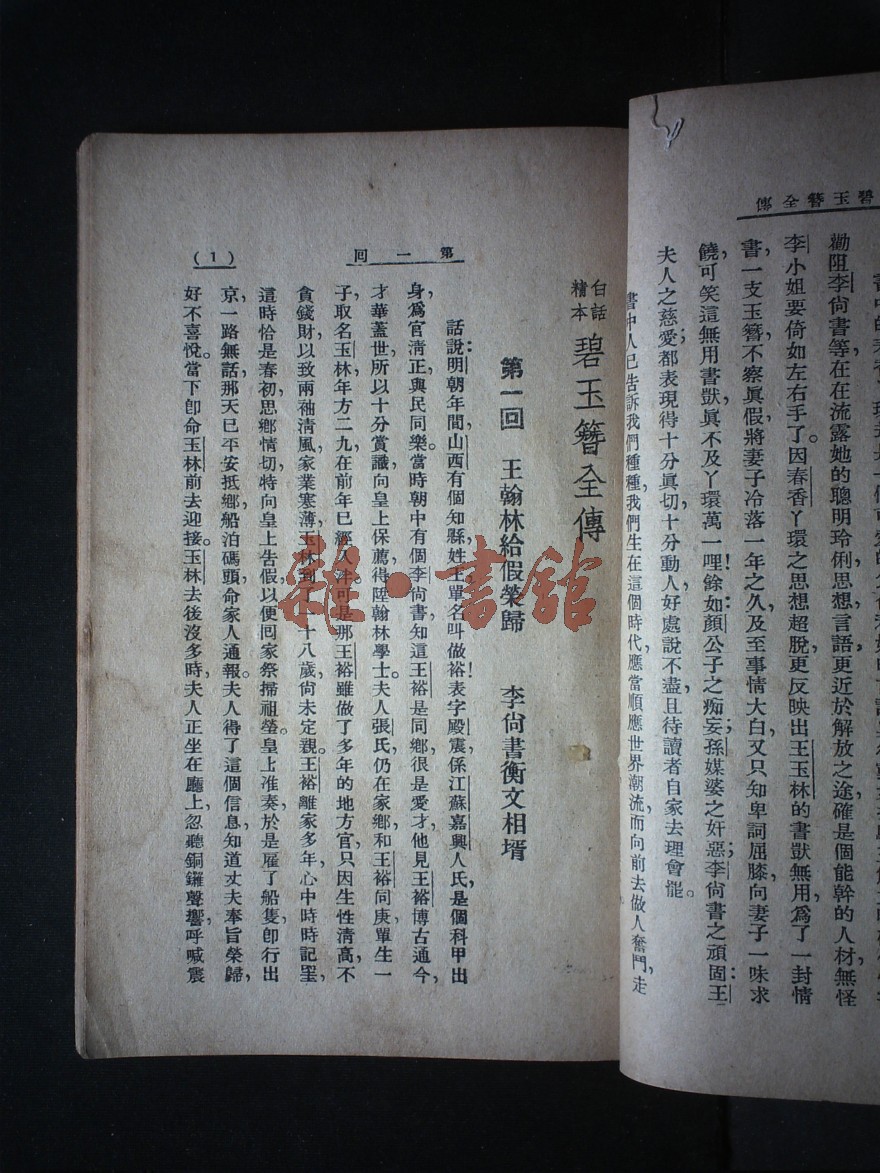 碧玉簪全傳
勸阻李尙書等在在流露她的聰明玲俐思想,言語,更近於解放之途確是個能幹的人材無怪
李小姐要倚如左右手了。因春香丫環之思想超脫,更反映出王玉林的書獃無用,爲了一封情
書一支玉簪,不察眞假,將妻子冷落一年之久,及至事情大白,又只知卑詞屈膝,向妻子一味求
饒,可笑這無用書獃,眞不及丫環萬一哩!餘如:顏公子之痴妄;孫媒婆之奸惡;李尙書之頑固;王
夫人之慈愛;都表現得十分眞切,十分動人,好處說不盡,且待讀者自家去理會罷。
書中人已告訴我們種種,我們生在這個時代,應當順應世界潮流,而向前去做人奮鬥,走
第一回
(1)
白話繪本 碧玉簪全傳
第一回 王翰林給假榮歸 李尙書衡文相壻
話說:明朝年間,山西有個知縣,姓王,單名叫做裕!表字殿震,係江蘇嘉興人氏,是個科甲出
身,爲官淸正,與民同樂。當時朝中有個李尙書,知這王裕是同鄉,很是愛才,他見王裕博古通今,
才華蓋世,所以十分賞識,向皇上保薦,得陞翰林學士。夫人張氏,仍在家鄉,和王裕同庚,單生一
子,取名玉林,年方二九,在前年已經入泮。可是那王裕雖做了多年的地方官,只因生性淸高,不
貪錢財,以致兩袖淸風,家業寒薄,玉林到了一十八歲,尙未定親。王裕離家多年,心中時時記罣,
這時恰是春初,思鄉情切,特向皇上告假,以便回家祭掃祖塋。皇上准奏,於是雇了船隻,卽行出
京,一路無話,那天已平安抵鄉,船泊碼頭,命家人通報。夫人得了這個信息,知道丈夫奉旨榮歸,
好不喜悅。當下卽命玉林前去迎接。玉林去後沒多時,夫人正坐在廳上,忽聽銅鑼聲響,呼喊震
雜·書館